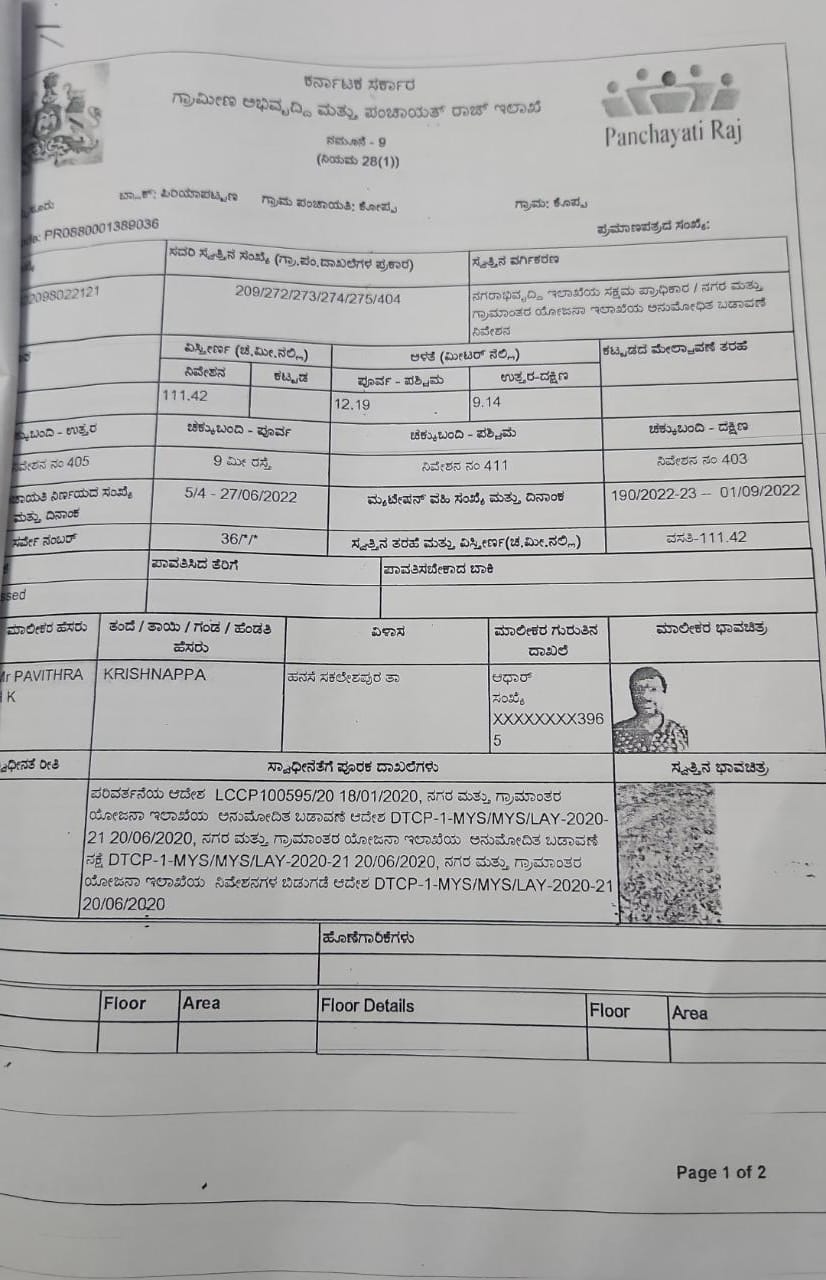 ಕರ್ನಾಟಕ ಸರ್ಕಾರ
ಗ್ರಾಮೀಣ ಅಭಿವೃದ್ದಿ ಮತ್ತು ಪಂಚಾಯತ್ ರಾಜ್ ಇಲಾಖೆ
Panchayati Raj
ನಮೂನೆ - 9
(ನಿಯಮ 28(1))
ಬ್ಲಾಕ್: ಪಿರಿಯಾಪಟ್ಟಣ ಗ್ರಾಮ ಪಂಚಾಯತಿ: ಕೊಪ್ಪ ಗ್ರಾಮ: ಕೊಪ್ಪ
PR0880001389036 ಪ್ರಮಾಣಪತ್ರದ ಸಂಖ್ಯೆ:
ಸದರಿ ಸ್ವತ್ತಿನ ಸಂಖ್ಯೆ (ಗ್ರಾ.ಪಂ.ದಾಖಲೆಗಳ ಪ್ರಕಾರ) ಸ್ವತ್ತಿನ ವರ್ಗೀಕರಣ
2098022121 209/272/273/274/275/404 ನಗರಾಭಿವೃದ್ದಿ ಇಲಾಖೆಯ ಸಕ್ಷಮ ಪ್ರಾಧಿಕಾರ / ನಗರ ಮತ್ತು
ಗ್ರಾಮಾಂತರ ಯೋಜನಾ ಇಲಾಖೆಯ ಅನುಮೋಧಿತ ಬಡಾವಣೆ
ನಿವೇಶನ
ವಿಸ್ತೀರ್ಣ (ಚ.ಮೀ.ನಲ್ಲಿ) ಅಳತೆ (ಮೀಟರ್ ನಲ್ಲಿ) ಕಟ್ಟಡದ ಮೇಲ್ಚಾವಣೆ ತರಹೆ
ನಿವೇಶನ ಕಟ್ಟಡ ಪೂರ್ವ - ಪಶ್ಚಿಮ ಉತ್ತರ-ದಕ್ಷಿಣ
111.42 12.19 9.14
ಚೆಕ್ಕುಬಂದಿ - ಉತ್ತರ ಚೆಕ್ಕುಬಂದಿ - ಪೂರ್ವ ಚೆಕ್ಕುಬಂದಿ - ಪಶ್ಚಿಮ ಚೆಕ್ಕುಬಂದಿ - ದಕ್ಷಿಣ
ನಿವೇಶನ ನಂ 405 9 ಮೀ ರಸ್ತೆ ನಿವೇಶನ ನಂ 411 ನಿವೇಶನ ನಂ 403
ಚಾಯತಿ ನಿರ್ಣಯದ ಸಂಖ್ಯೆ 5/4 - 27/06/2022 ಮ್ಯುಟೇಷನ್ ವಹಿ ಸಂಖ್ಯೆ ಮತ್ತು ದಿನಾಂಕ 190/2022-23 -- 01/09/2022
ಮತ್ತು ದಿನಾಂಕ
ಸರ್ವೇ ನಂಬರ್ 36/*/* ಸ್ವತ್ತಿನ ತರಹೆ ಮತ್ತು ವಿಸ್ತೀರ್ಣ(ಚ.ಮೀ.ನಲ್ಲಿ) ವಸತಿ-111.42
ಪಾವತಿಸಿದ ತೆರಿಗೆ ಪಾವತಿಸಬೇಕಾದ ಬಾಕಿ
ssed
ಮಾಲೀಕರ ಹೆಸರು ತಂದೆ / ತಾಯಿ / ಗಂಡ / ಹೆಂಡತಿ ವಿಳಾಸ ಮಾಲೀಕರ ಗುರುತಿನ ಮಾಲೀಕರ ಭಾವಚಿತ್ರ
ಹೆಸರು ದಾಖಲೆ
Mr PAVITHRA KRISHNAPPA ಹನಸೆ ಸಕಲೇಶಪುರ ತಾ ಆಧಾರ್
K ಸಂಖ್ಯೆ
XXXXXXXX396
5
ಸ್ವಾಧೀನತೆ ರೀತಿ ಸ್ವಾಧೀನತೆಗೆ ಪೂರಕ ದಾಖಲೆಗಳು ಸ್ವತ್ತಿನ ಭಾವಚಿತ್ರ
ಪರಿವರ್ತನೆಯ ಆದೇಶ LCCP100595/20 18/01/2020, ನಗರ ಮತ್ತು ಗ್ರಾಮಾಂತರ
ಯೋಜನಾ ಇಲಾಖೆಯ ಅನುಮೋದಿತ ಬಡಾವಣೆ ಆದೇಶ DTCP-1-MYS/MYS/LAY-2020-
21 20/06/2020, ನಗರ ಮತ್ತು ಗ್ರಾಮಾಂತರ ಯೋಜನಾ ಇಲಾಖೆಯ ಅನುಮೋದಿತ ಬಡಾವಣೆ
ನಕ್ಷೆ DTCP-1-MYS/MYS/LAY-2020-21 20/06/2020, ನಗರ ಮತ್ತು ಗ್ರಾಮಾಂತರ
ಯೋಜನಾ ಇಲಾಖೆಯ ನಿವೇಶನಗಳ ಬಿಡುಗಡೆ ಆದೇಶ DTCP-1-MYS/MYS/LAY-2020-21
20/06/2020
ಹೊಣೆಗಾರಿಕೆಗಳು
Floor Area Floor Details Floor Area
Page 1 of 2